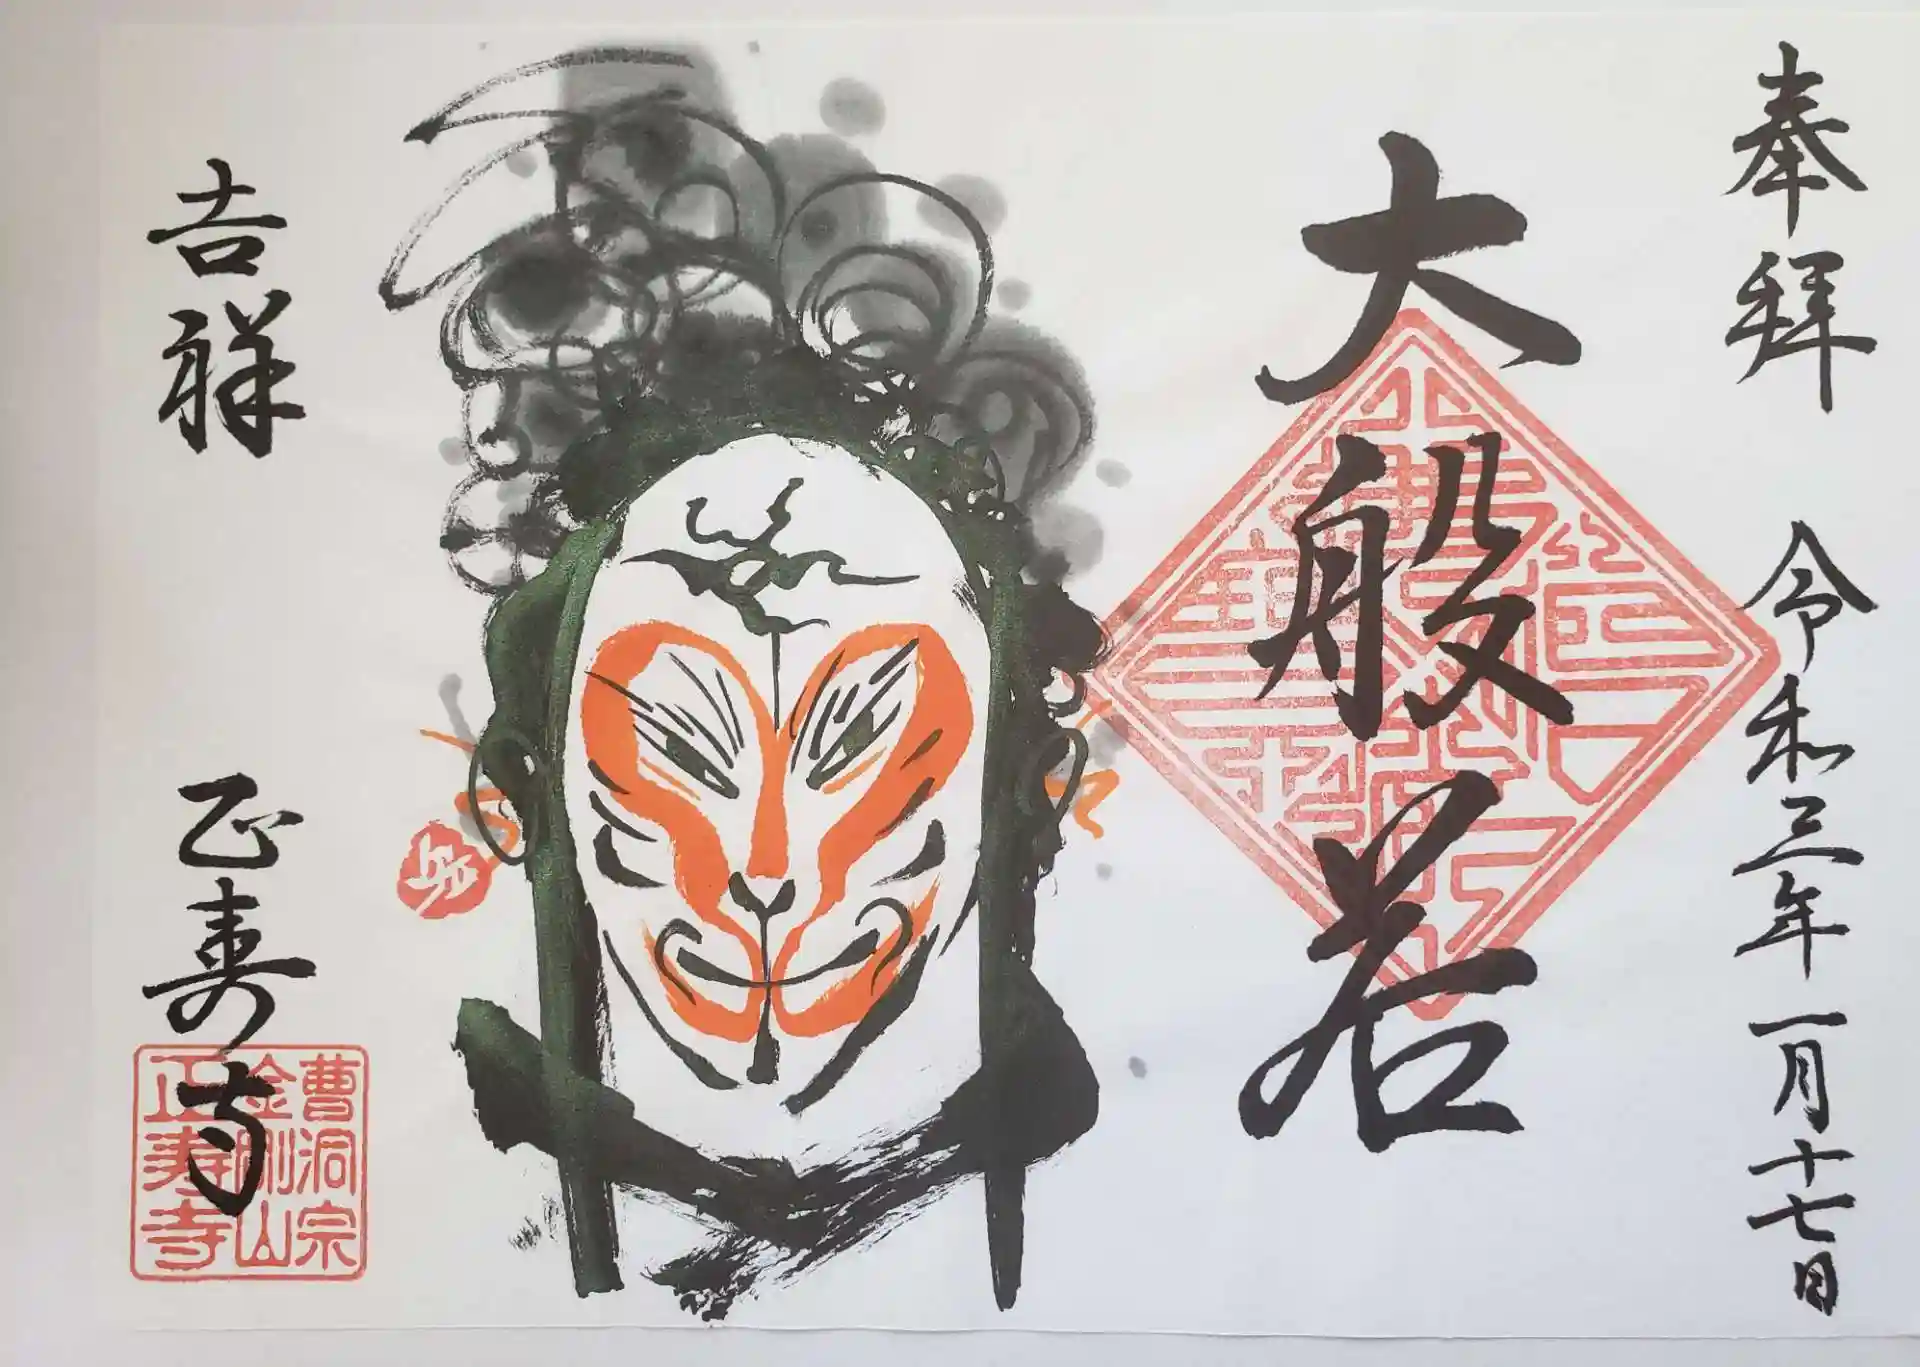 奉拝 令和三年一月十七日
大般若
吉祥
正寿寺
曹洞宗
金剛山
正寿寺